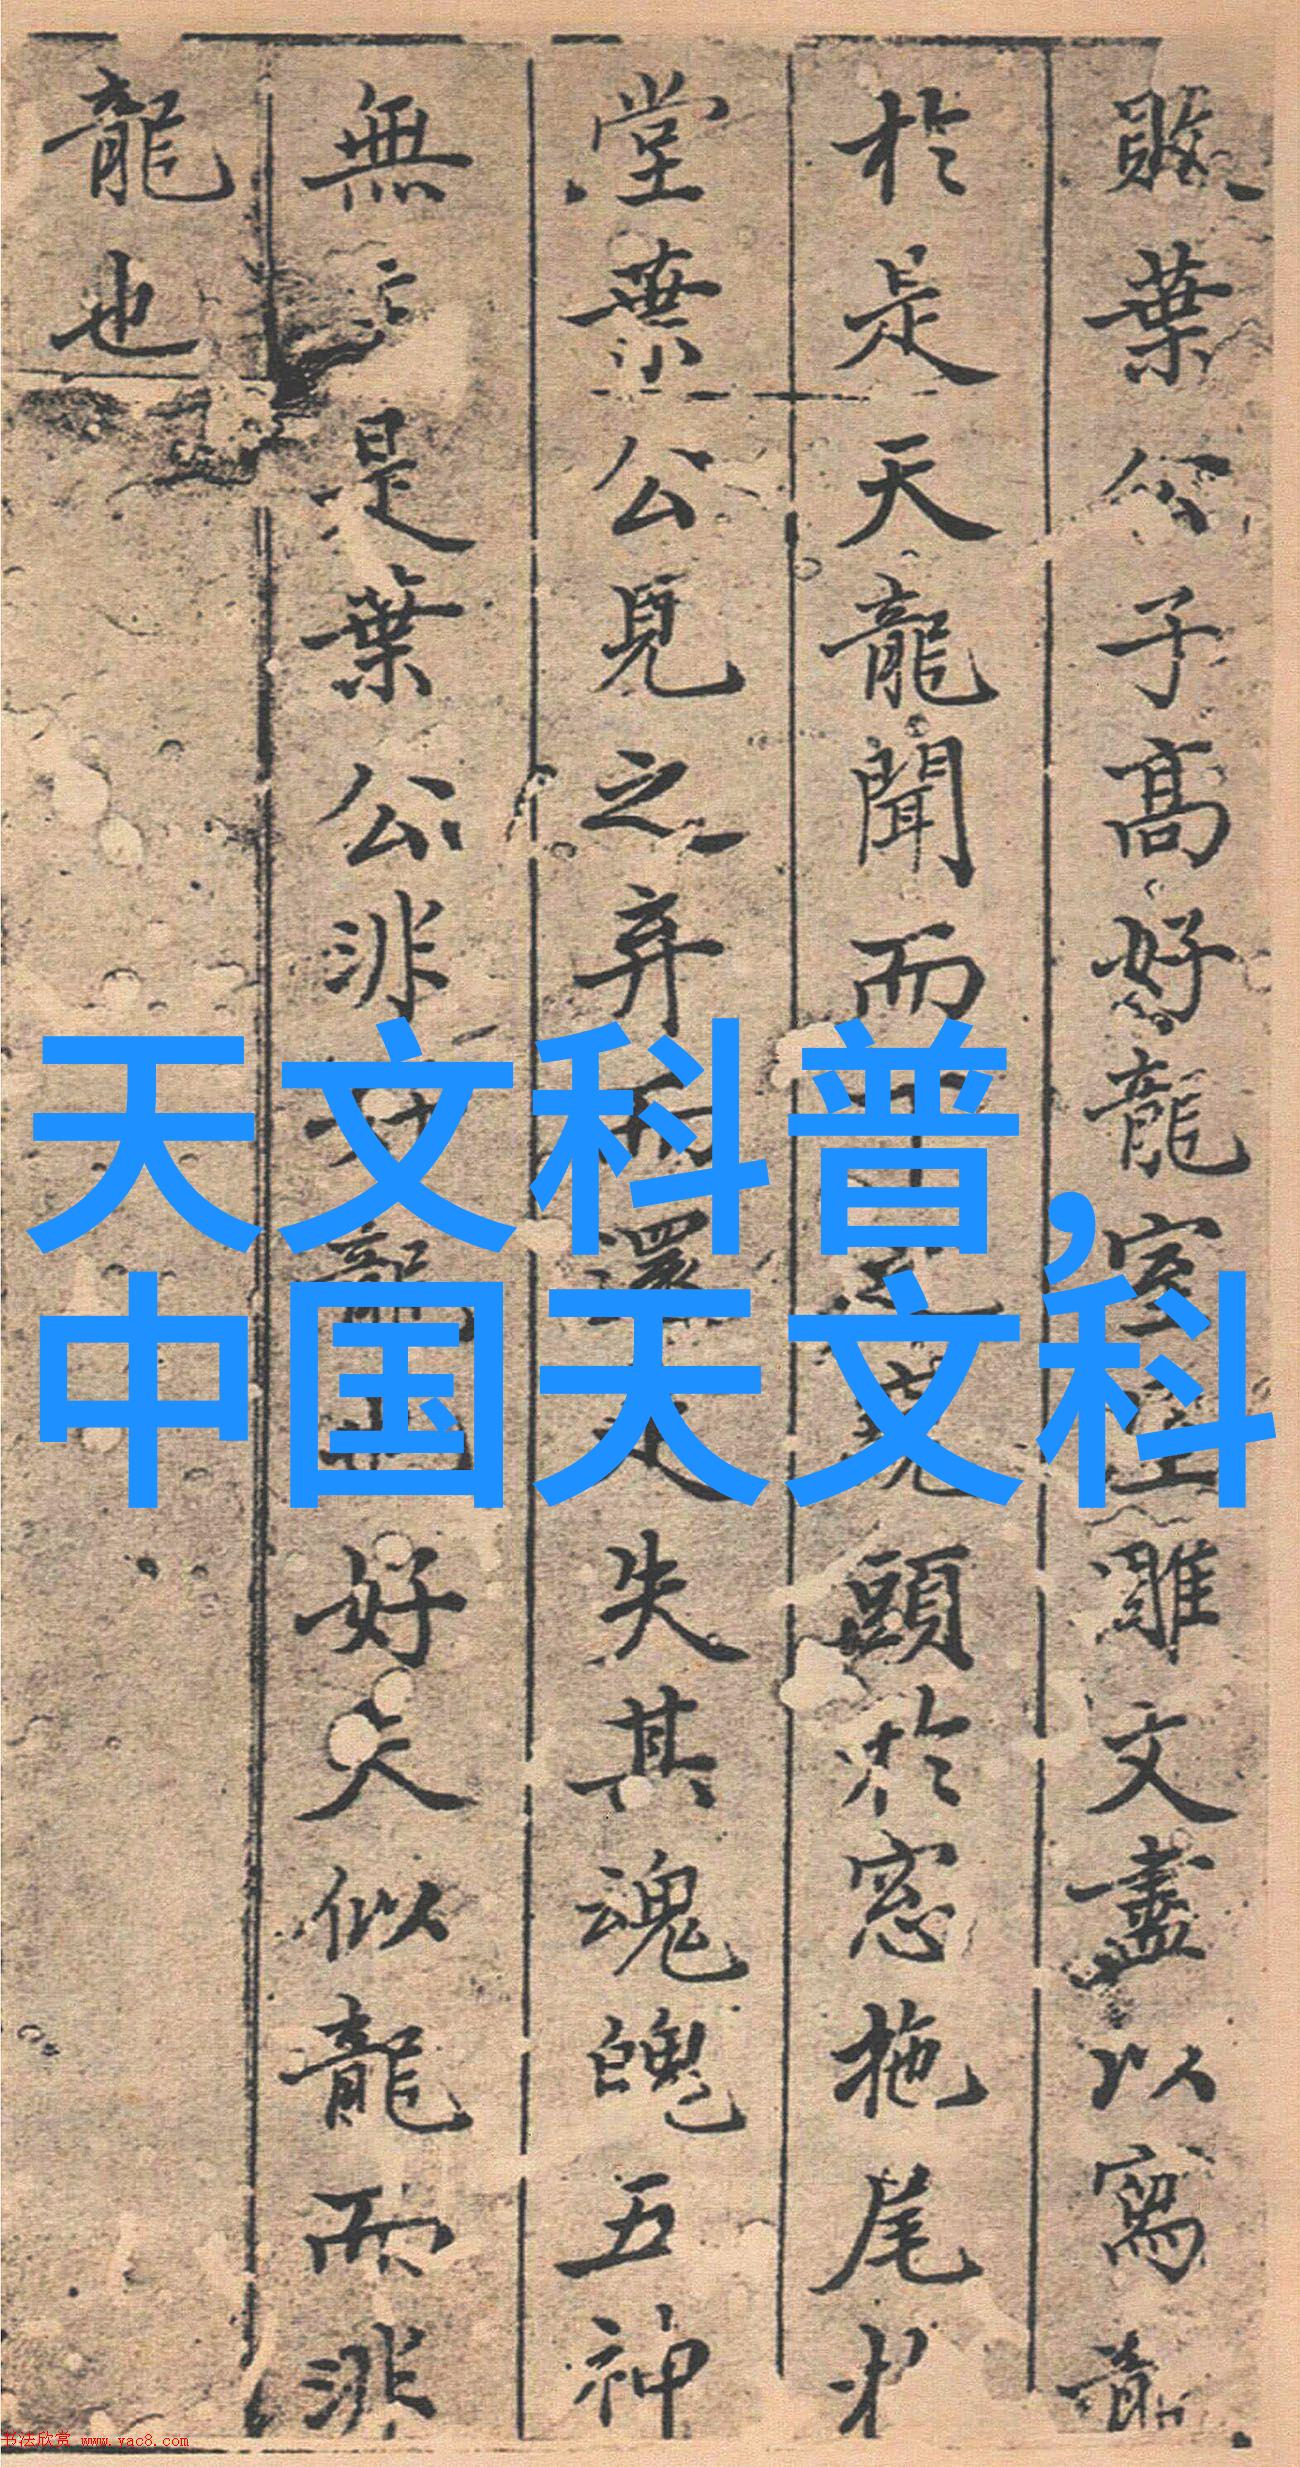 葉公子高好龍室雕文盡以寫龍
於是天龍聞而頭於窓拖尾於
堂葉公見之弃而還走失其魂魄五神
無主是葉公非好龍也好夫似龍而非
龍也
天文科普,
中国天文科
书法欣赏 www.yac8.com